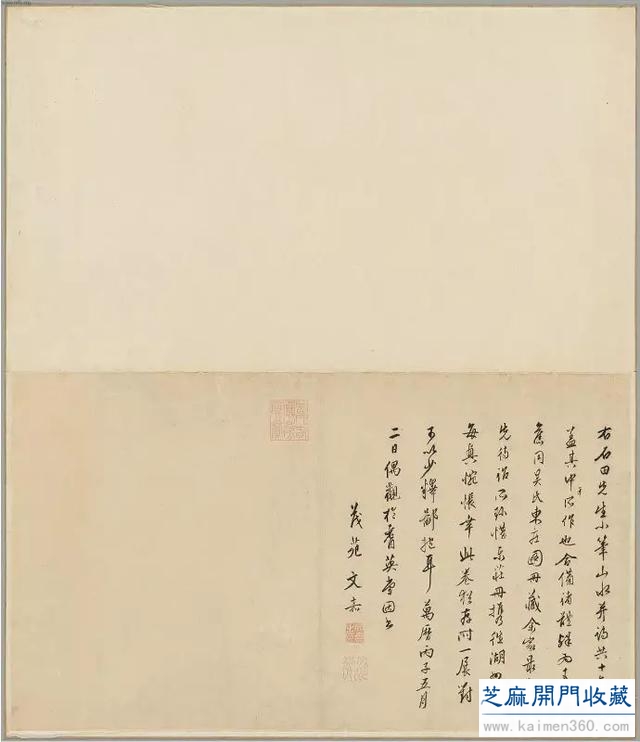 右石田先生小筆山水并詩共十
蓋其中年所作也合備諸體
舊同吳氏東莊圖冊藏余家最
先待詔所珍惜東莊冊携往湖
每惋悵幸此卷猶存時一展對
可以少釋鄙抱耳萬曆丙子五月
二日偶觀於英堂因書
茂苑文嘉
芝麻開門收藏
www.kaimen360.com